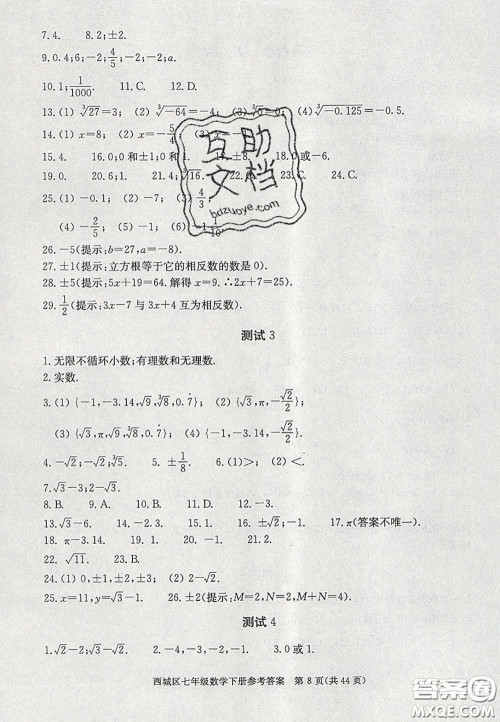 7. 4.  8. 2;±2.
9. 0.4;6;-2;4/5;-2;-2;a.
10. 1;1/1000.  11. C.  12. D.
13. (1) ∛27=3; (2) ∛-64=-4; (3) ∛0=0; (4) ∛-0.125=-0.5.
14. (1) x=8; (2) x=-5/4; (3) x=
15. 4.  16. 0;0 和±1;0 和 1.  17. ±8.  18. 0 或-6.
19. 0.  20. 6;1.  21. 4;∛16.  22. A.  23. C.  24. C.
25. (1) -0.1; (2) -5; (3) 4/3;
(4) -2/5; (5) -1; (6) 1/10.
26. -5(提示:b=27,a=-8).
27. ±1(提示:立方根等于它的相反数的数是 0).
28. ±5(提示:5x+19=64. 解得 x=9. ∴2x+7=25).
29. 1/2(提示:3x-7 与 3x+4 互为相反数).
测试 3
1. 无限不循环小数;有理数和无理数.
2. 实数.
3. (1) {-1,-3.14,√9,∛8,0.7̇}; (2) {√3,π,-√2/2};
(3) {√3,π,√9,∛8,0.7̇}; (4) {-1,-3.14,-√2/2}.
4. -√2;-√2;∛5.  5. ±1/8.  6. (1)>; (2)<.
7. √3-3;2-√3.  8. A.  9. B.  10. D.  11. A.  12. -3.
13. √3-6.  14. 2.  15. π-3.  16. ±√2;-1.  17. π(答案不唯一).
18. π-3.14.  19. B.  20. A.  21. C.
22. √11.  23. B.
24. (1) 0,±1,±2,±3; (2) 2-√2.
25. x=11,y=√3-1.  26. ±2(提示:M=2,N=2,M+N=4).
测试 4
1. √2-2;√3-√2.  2. -4,-3,-2,-1.  3. 0 或 1.
西城区七年级数学下册参考答案 第 8 页(共 44 页)
互助文档
bdzuoye.com